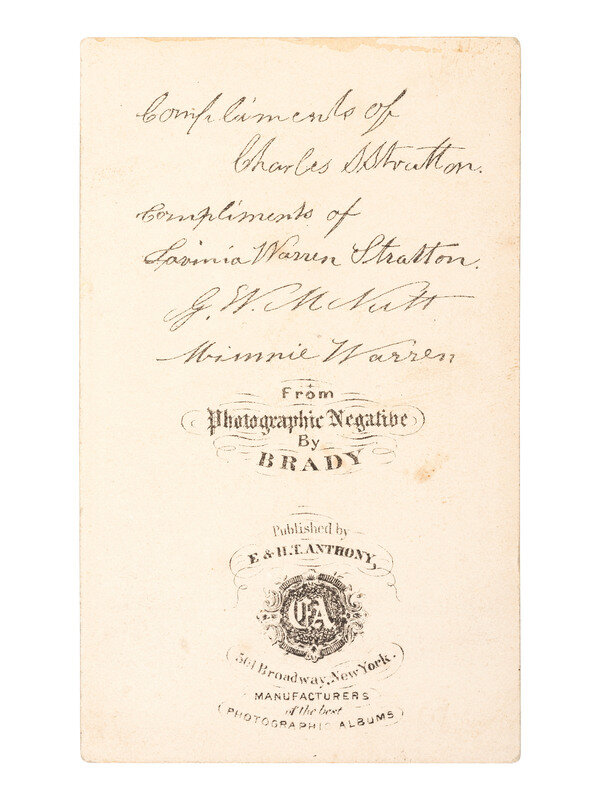 Compliments of
Charles S. Stratton.
Compliments of
Lavinia Warren Stratton.
G. W. M Nutt
Minnie Warren
From
Photographic Negative
By
BRADY
Published by
E & H.T. ANTHONY,
EA
501 Broadway, New York.
MANUFACTURERS
of the best
PHOTOGRAPHIC ALBUMS